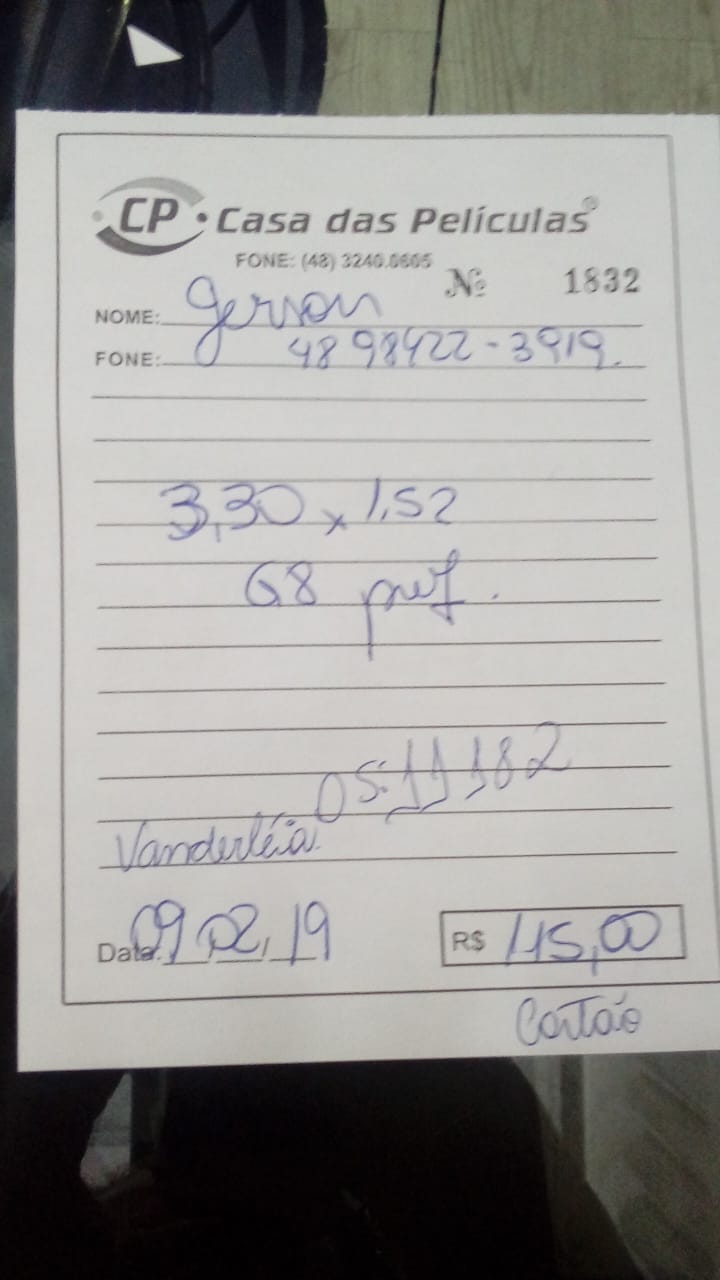 CP · Casa das Películas®
FONE: (48) 3240.0605
Nº 1832
NOME: Gerson
FONE: 48 98422-3919.
3,30 x 1,52
G8 prof.
OS: 11182
Vanderléia
Data: 09/02/19
R$ 115,00
Cartão